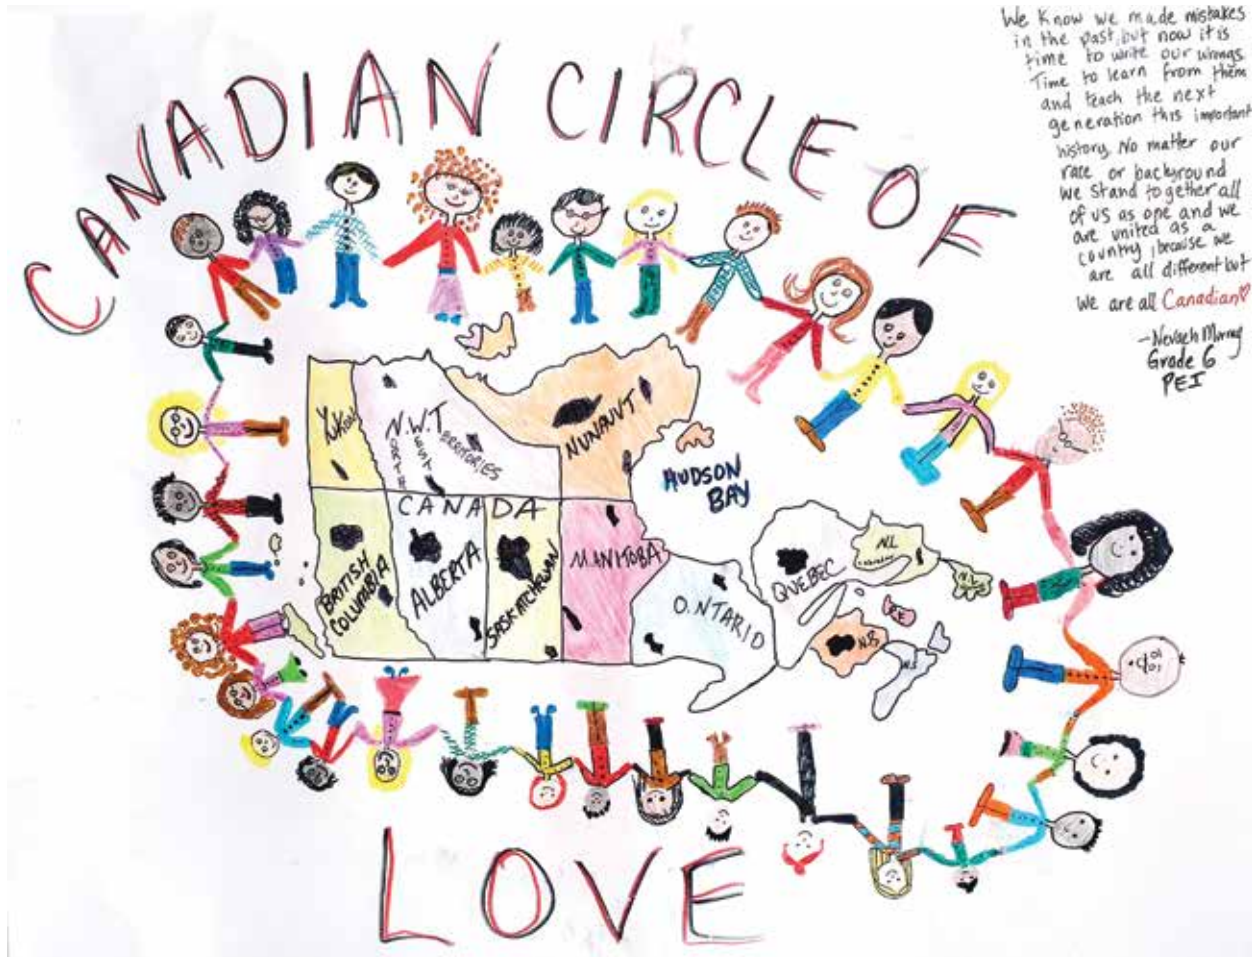 CANADIAN CIRCLE OF
We know we made mistakes
in the past, but now it is
time to write our wrongs.
Time to learn from them
and teach the next
generation this important
history. No matter our
race or background
we stand together all
of us as one and we
are united as a
country, because we
are all different but
we are all Canadian
Grade 6
PEI
YUKON
N.W.T
NORTH
WEST
TERRITORIES
NUNAVUT
HUDSON
BAY
CANADA
BRITISH
COLUMBIA
ALBERTA
SASKATCHEWAN
MANITOBA
ONTARIO
QUEBEC
N.L
Labrador
N.L
P.E.
N.B
N.S
LOVE